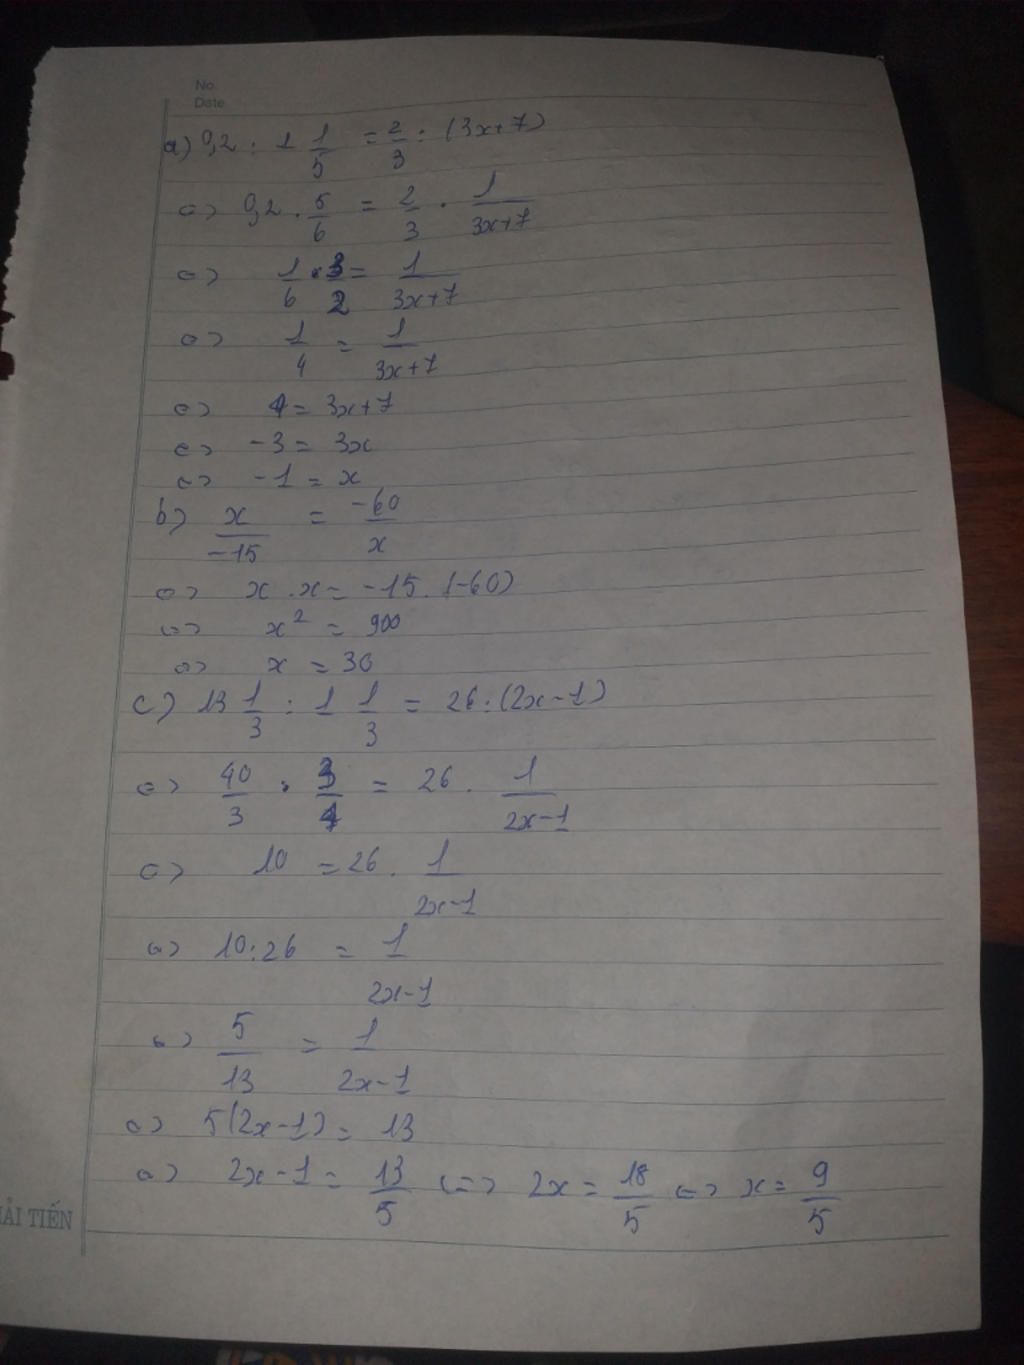 No
Date
a) 0,2 : 1 1/5 = 2/3 : (3x+7)
<=> 0,2 . 5/6 = 2/3 . 1/(3x+7)
<=> 1/6 . 3/2 = 1/(3x+7)
<=> 1/4 = 1/(3x+7)
<=> 4 = 3x+7
<=> -3 = 3x
<=> -1 = x
b) x/-15 = -60/x
<=> x . x = -15 . (-60)
<=> x² = 900
<=> x = 30
c) 13 1/3 : 1 1/3 = 26 : (2x-1)
<=> 40/3 . 3/4 = 26 . 1/(2x-1)
<=> 10 = 26 . 1/(2x-1)
<=> 10:26 = 1/(2x-1)
<=> 5/13 = 1/(2x-1)
<=> 5(2x-1) = 13
<=> 2x-1 = 13/5 <=> 2x = 18/5 <=> x = 9/5
ẢI TIẾN